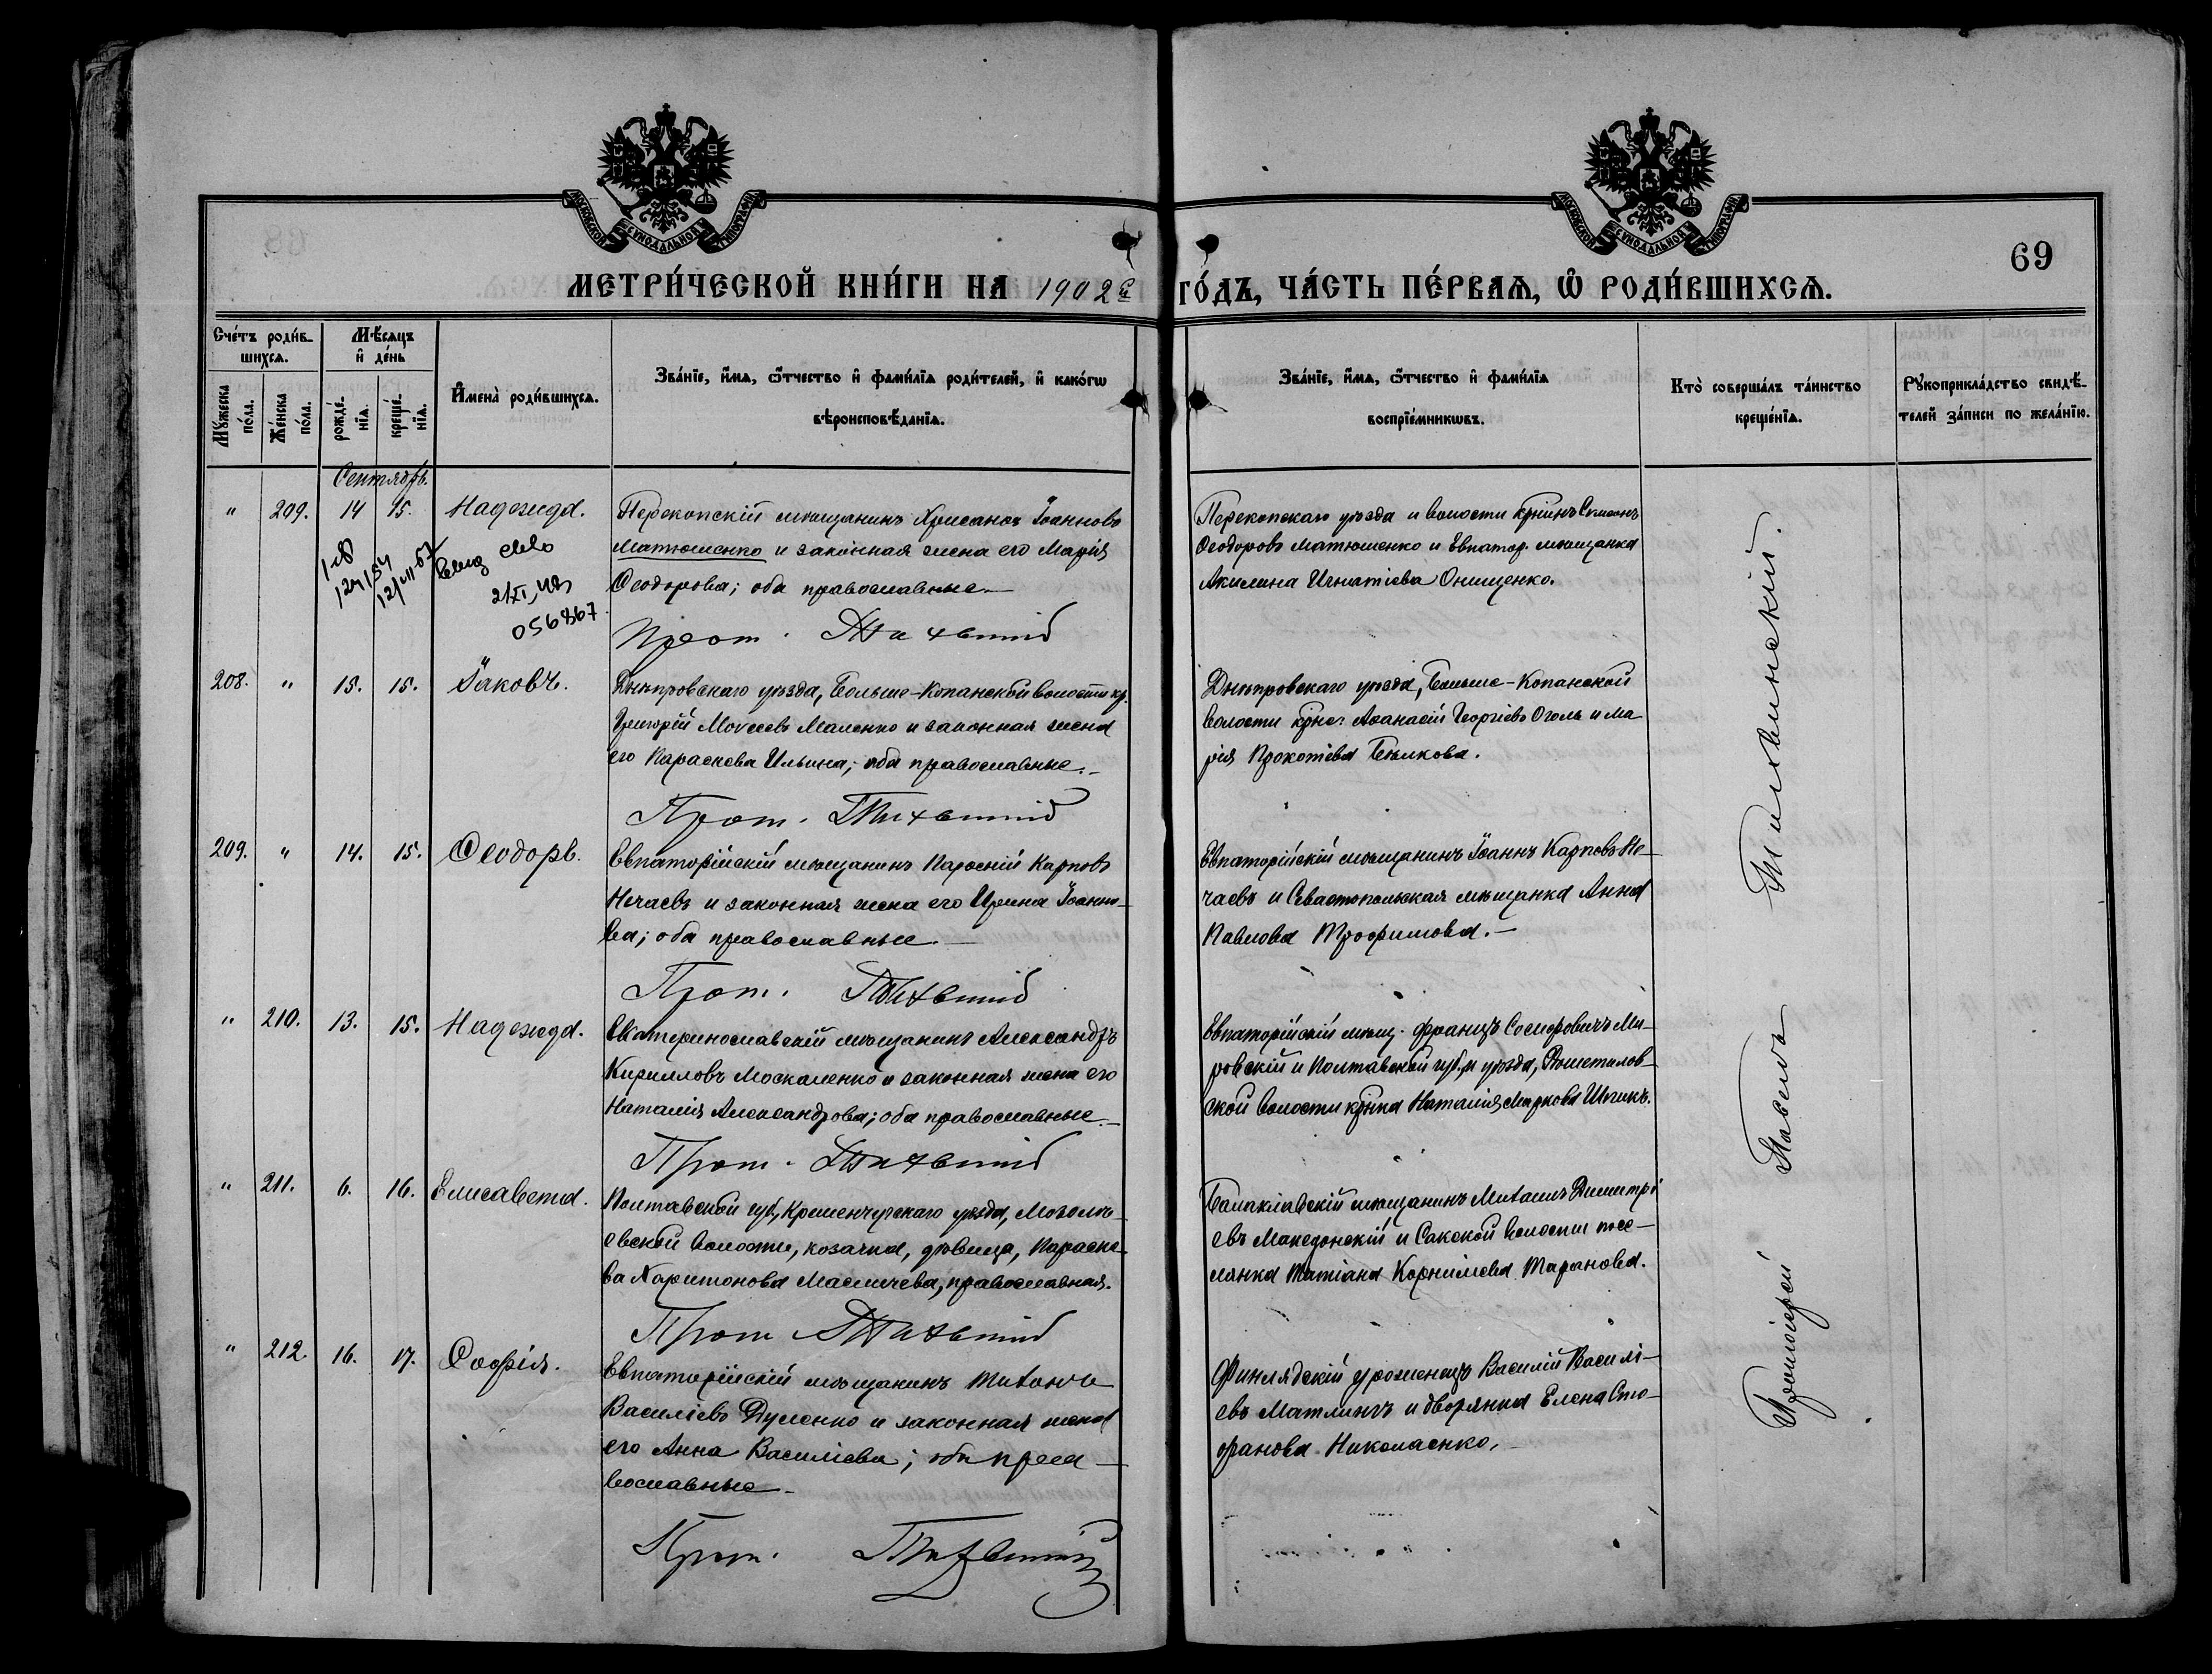 МОСКОВСКОЙ СѴНОДАЛЬНОЙ ТИПОГРАФІИ
МОСКОВСКОЙ СѴНОДАЛЬНОЙ ТИПОГРАФІИ
69
МЕТРИ́ЧЕСКОЙ КНИ́ГИ НА 1902й ГО́ДЪ, ЧА́СТЬ ПЕ́РВАѦ, Ѡ҆ РОДИ́ВШИХСѦ.
Сче́тъ роди́в-
шихсѧ.
Мѣ́сѧцъ
и҆ де́нь
Мꙋ́жеска
по́ла.
Же́нска
по́ла.
рожде́-
нїѧ.
креще́-
нїѧ.
И҆мена̀ роди́вшихсѧ.
Зва́нїе, и҆́мѧ, ѻ҆́тчество и҆ фами́лїѧ роди́телей, и҆ како́гѡ
вѣроисповѣ́данїѧ.
Зва́нїе, и҆́мѧ, ѻ҆́тчество и҆ фами́лїѧ
воспрїе́мникѡвъ.
Кто̀ соверша́лъ та́инство
креще́нїѧ.
Рꙋкоприкла́дство свидѣ́-
телей за́писи по жела́нїю.
Сентябрь.
" 209. 14 15. Надежда.
Перекопскій мѣщанинъ Хрисанѳъ Іоанновъ
Матюшенко и законная жена его Марія
Ѳеодорова; оба православные
Прот. Тихвинскій
Перекопскаго уѣзда и волости крнинъ Симеонъ
Ѳеодоровъ Матюшенко и Евпатор. мѣщанка
Акилина Игнатіева Онищенко.
056867
208. " 15. 15. Іаковъ.
Днѣпровскаго уѣзда, Больше-Копанской волости кр.
Григорій Моисеевъ Маленко и законная жена
его Параскева Ильина; оба православные.
Прот. Тихвинскій
Днѣпровскаго уѣзда, Больше-Копанской
волости крнъ Аѳанасій Георгіевъ Оголь и Ма
рія Прокопіева Бѣликова.
209. " 14. 15. Ѳеодоръ.
Евпаторійскій мѣщанинъ Парѳеній Карповъ
Нечаевъ и законная жена его Ирина Іоанно-
ва; оба православные.
Прот. Тихвинскій
Евпаторійскій мѣщанинъ Іоаннъ Карповъ Не-
чаевъ и Севастопольская мѣщанка Анна
Павлова Трофимова.
" 210. 13. 15. Надежда.
Екатеринославскій мѣщанинъ Александръ
Кирилловъ Москаленко и законная жена его
Наталія Александрова; оба православные.
Прот. Тихвинскій
Евпаторійскій мѣщ. Францъ Сосифовичъ Ми-
ровскій и Полтавской губ. и уѣзда, Рѣшетилов-
ской волости крнка Наталія Маркова Шпикъ.
" 211. 6. 16. Елисавета.
Полтавской губ, Кременчугскаго уѣзда, Мозолѣ-
евской волости, козачка, дѣвица, Параске-
ва Харитонова Масличева, православная.
Прот Тихвинскій
Балаклавскій мѣщанинъ Михаилъ Димитрі
евъ Македонскій и Сакской волости посе-
лянка Татіана Корнилиева Таранова.
" 212. 16. 17. Софія.
Евпаторійскій мѣщанинъ Тихонъ
Василіевъ Дуленко и законная жена
его Анна Василіева; оба пра-
вославные
Прот. Тихвинскій
Финлядскій уроженецъ Василій Василі-
евъ Матлинъ и дворянка Елена Сте-
фанова Николаенко.
Протоіерей Павелъ Тихвинскій.